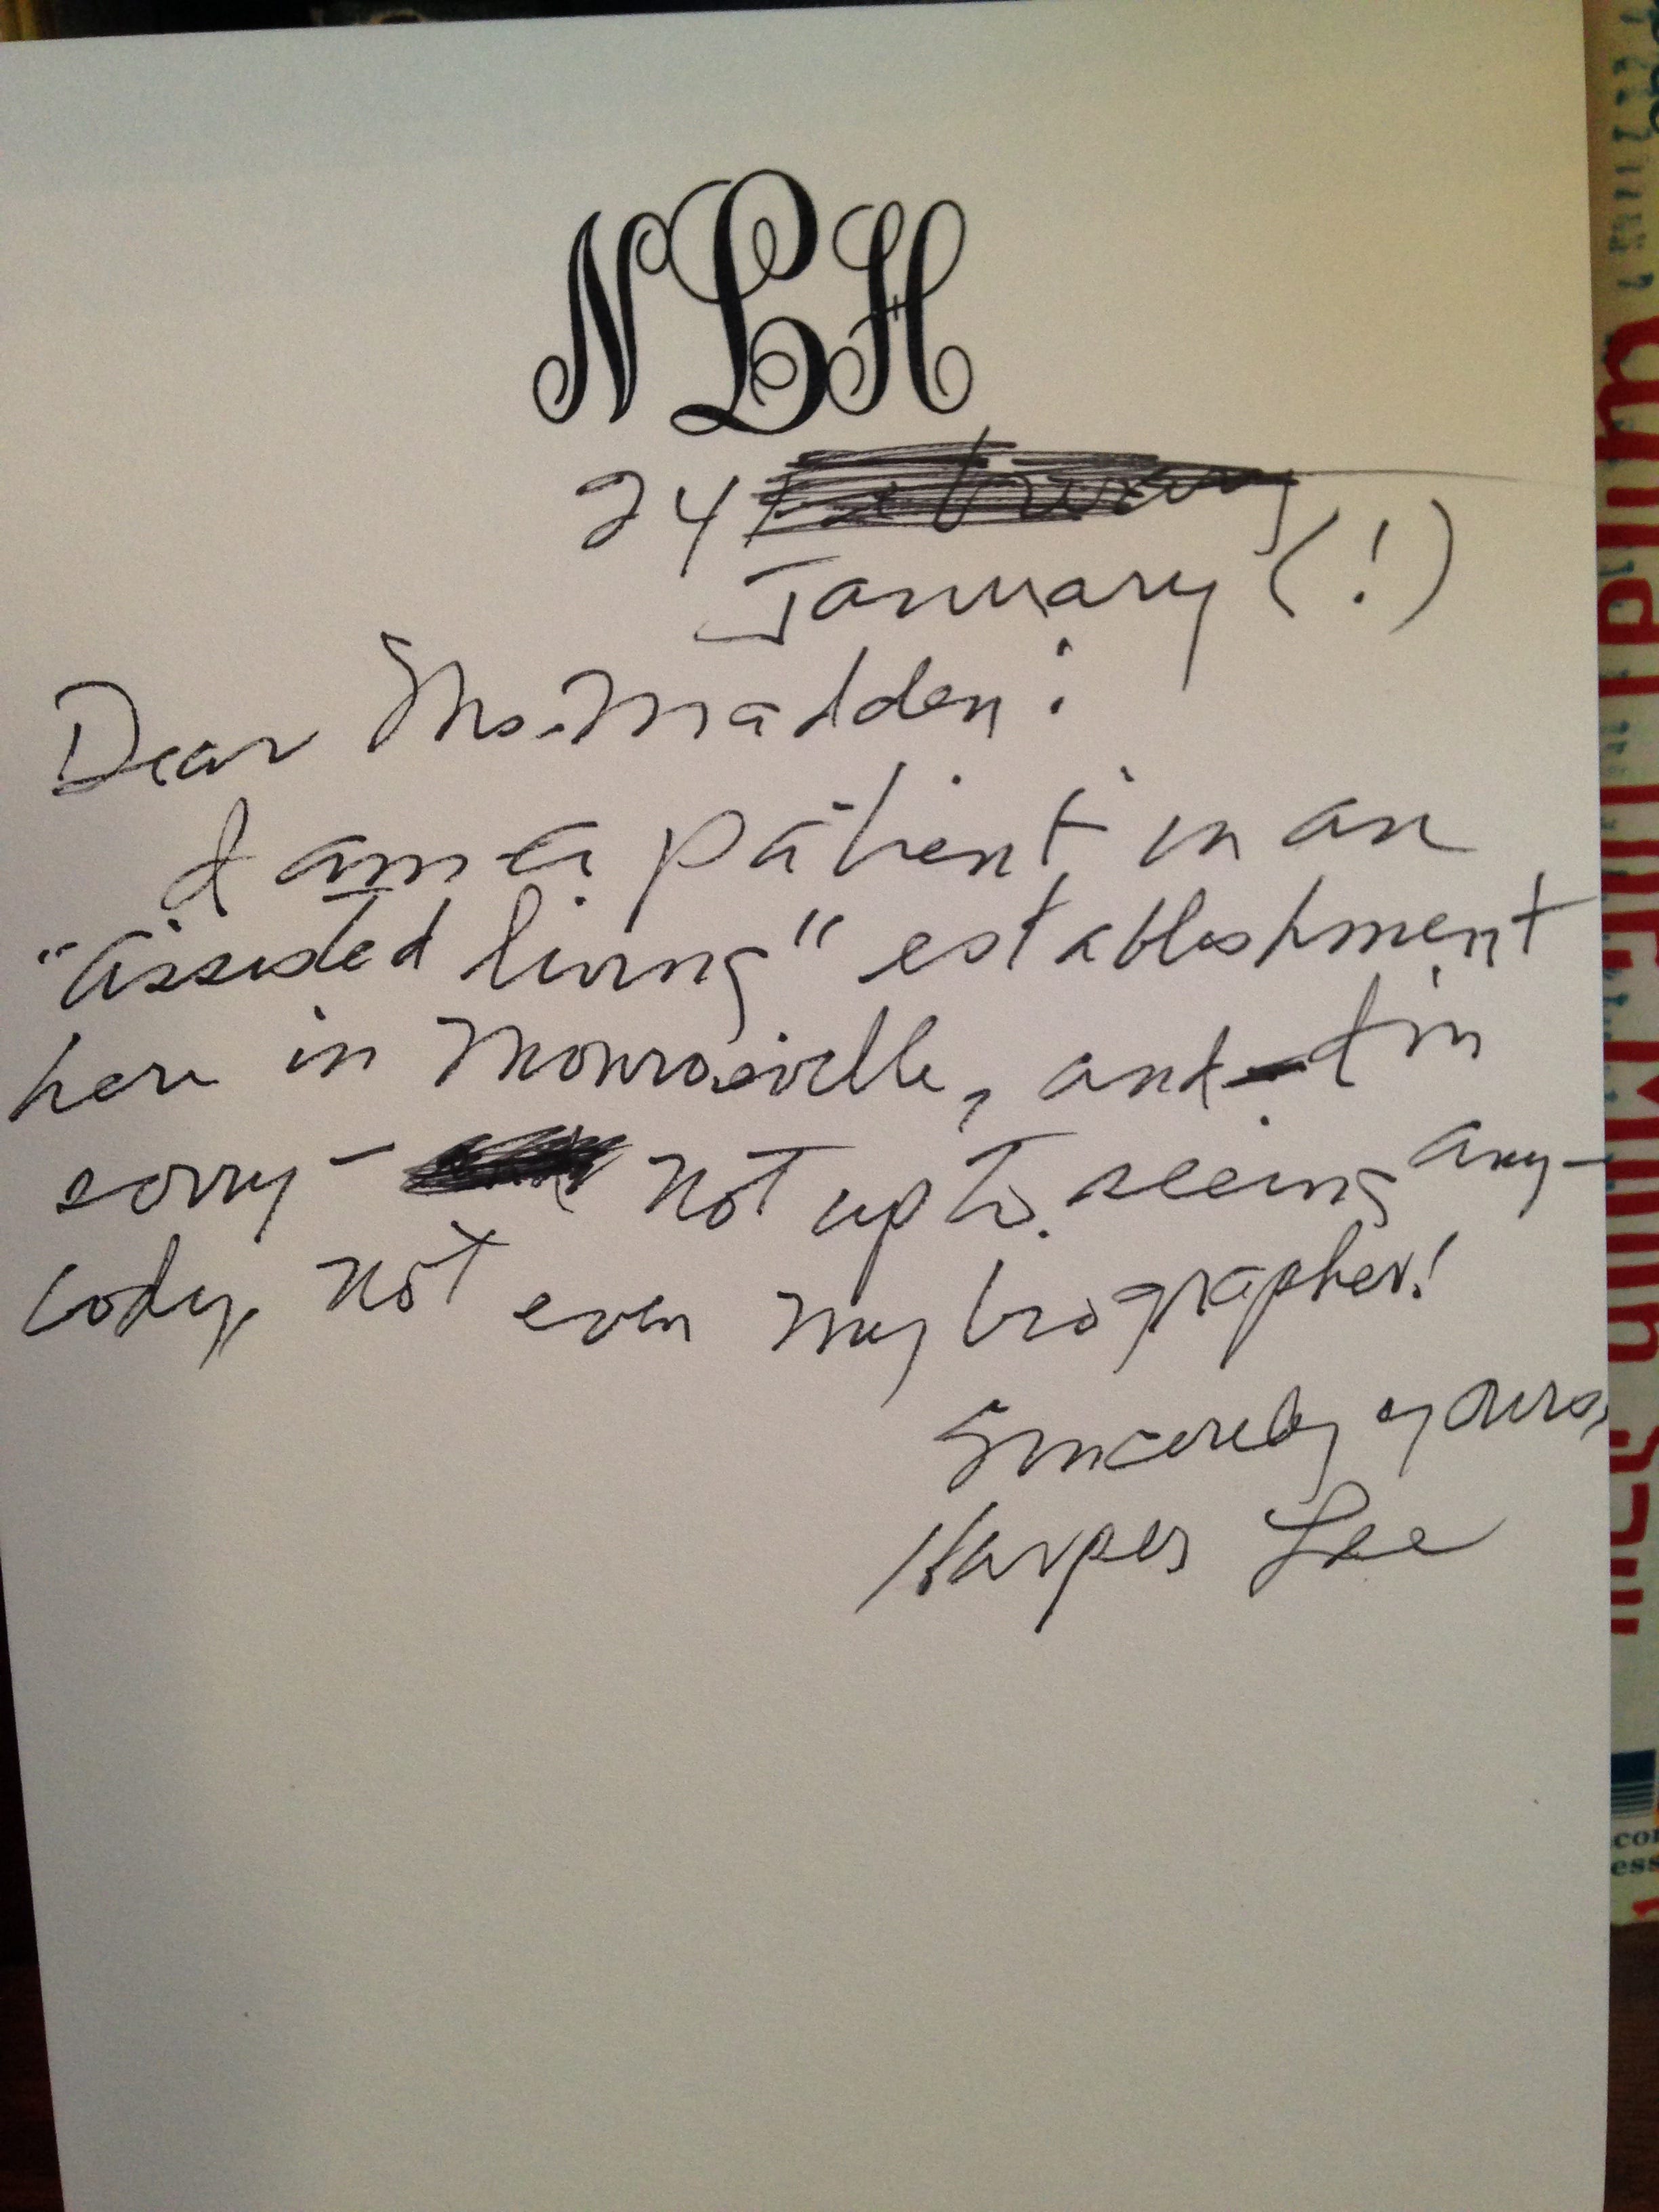 NLH
24 February
January (!)
Dear Ms. Madden:
I am a patient in an
"assisted living" establishment
here in Monroeville, and - I'm
sorry - not up to seeing any-
body, not even my biographer!
Sincerely yours,
Harper Lee